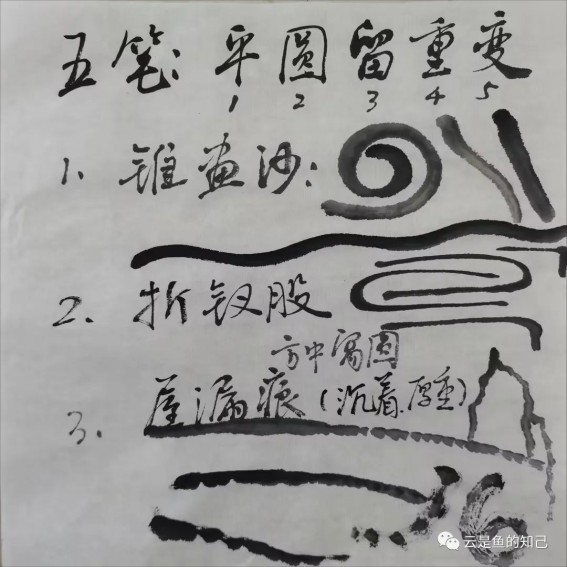 五笔 平圆留重变
1 2 3 4 5
1、锥画沙:
2、折钗股
方中寓圆
3、屋漏痕(沉着.厚重)
云是鱼的知己